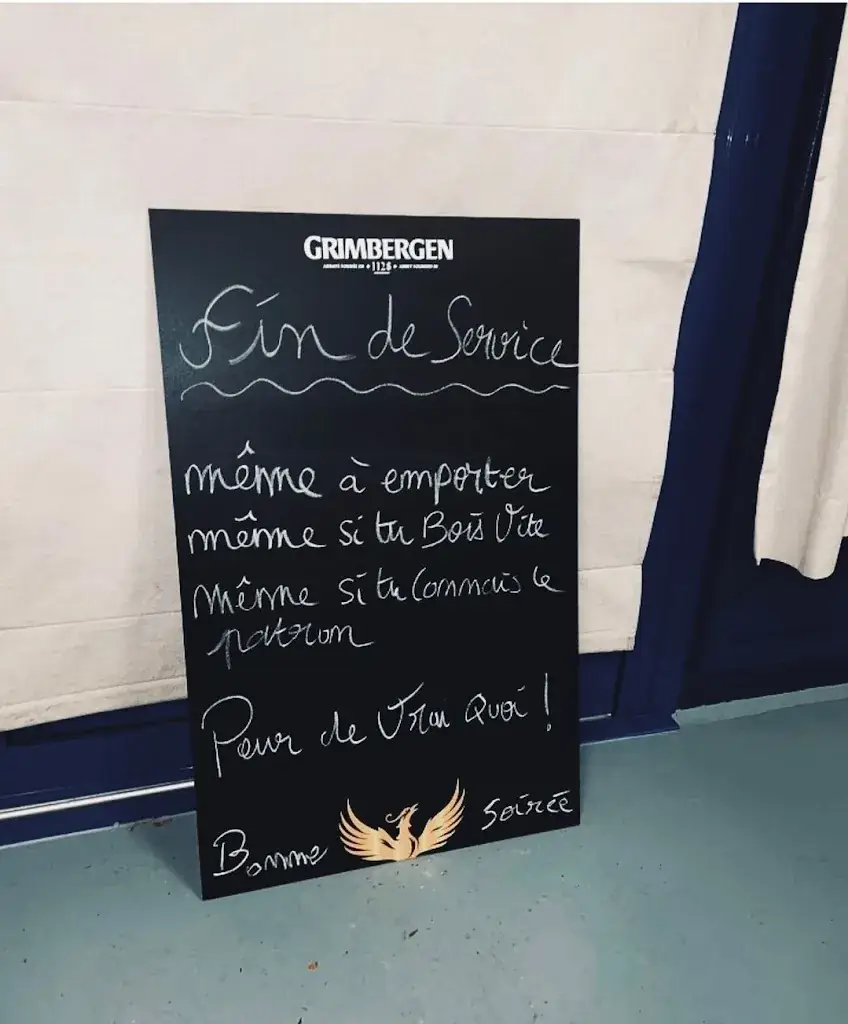 GRIMBERGEN
1128
Fin de Service
même à emporter
même si tu Bois Vite
même si tu Connais le
patron
Pour de Vrai Quoi !
Bonne soirée